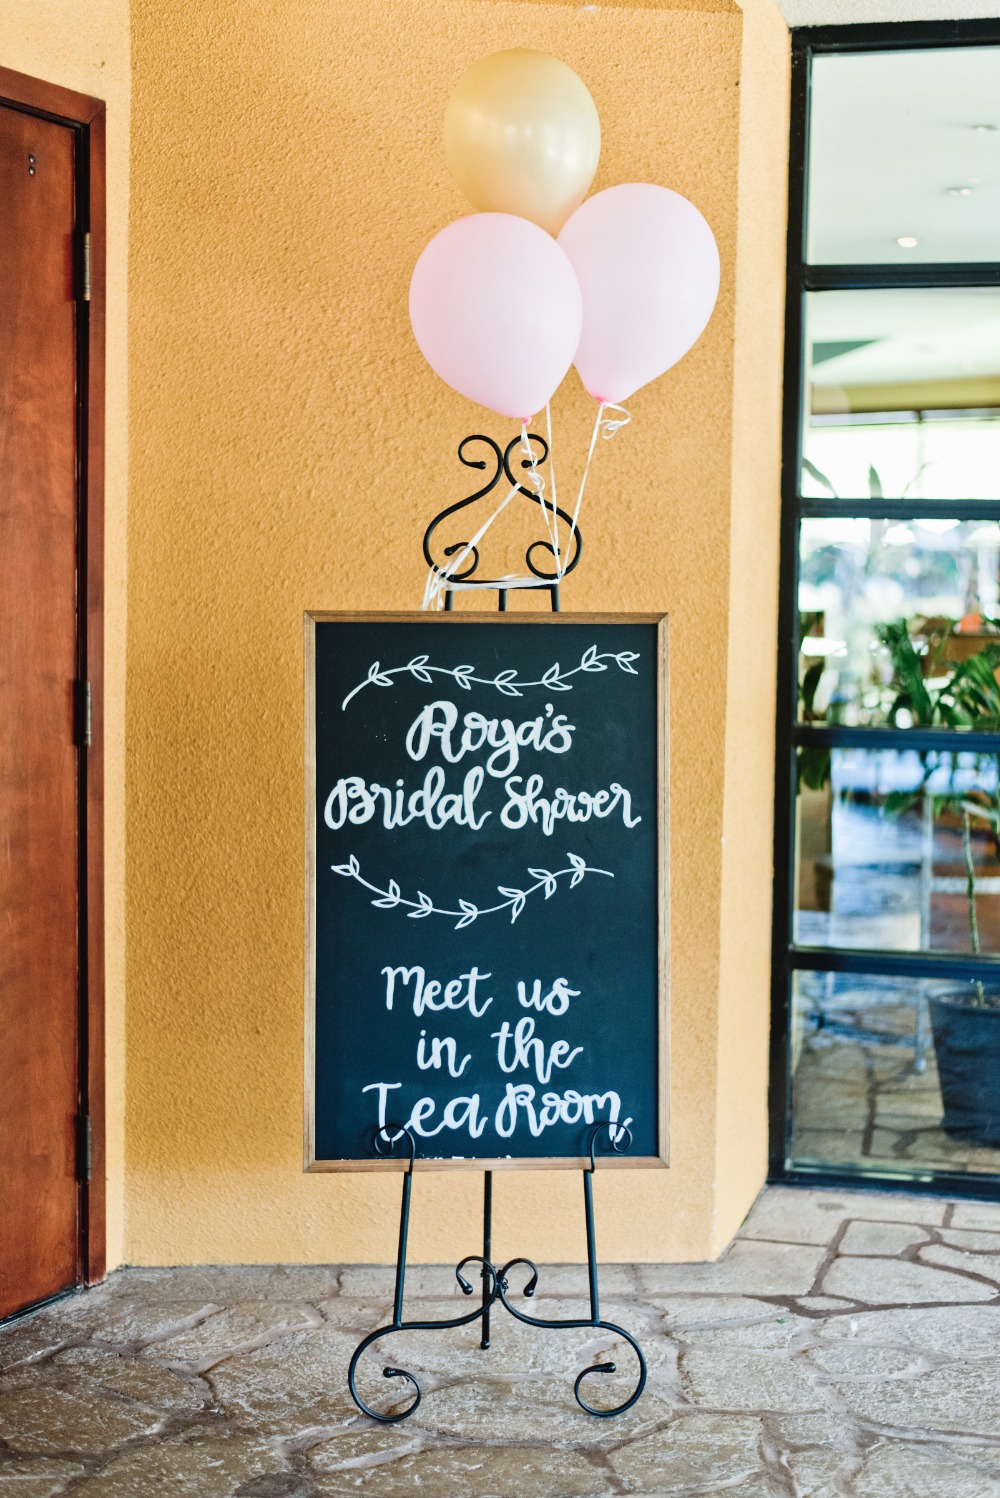 Roya's
Bridal Shower
Meet us
in the
Tea Room